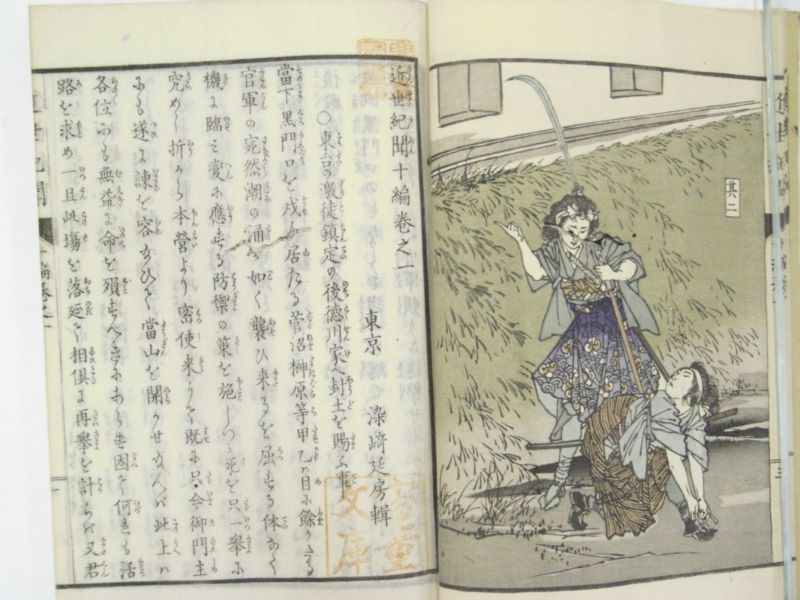 其二
近世紀聞十編卷之一
東京 染﨑延房輯
○東台の激徒鎮定の後德川家へ封土を賜ふ事
當下黒門口を戍り居たる菅沼榊原等甲乙は目に餘りたる
官軍の宛然潮の涌が如く襲ひ来るを屈する体なく
機に臨み變に應ずる防禦の策を施しつゝ死を只一擧に
究めし折から本營より密使来りて既に只今御門主
にも遂に諫を容たひて當山を開かせなんバ此上ハ
各位にも無益に命を殞すべきにあらず困て何れも活
路を求め一旦此塲を落延て相俱に再擧を計るハ又君
近世紀聞
十編卷之一
三
文庫